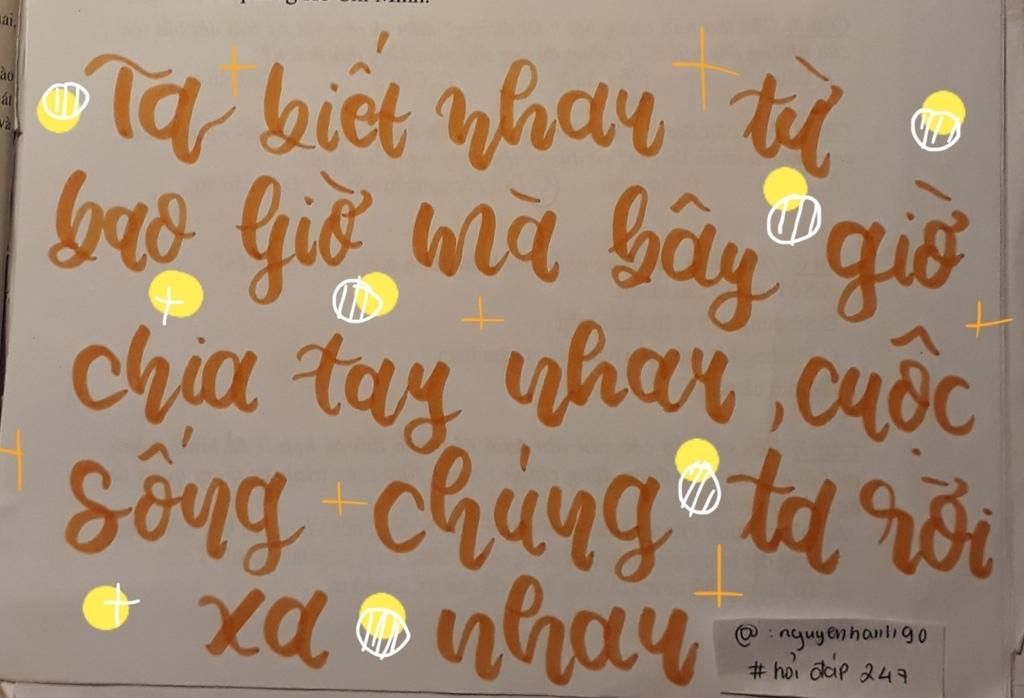 Ta biết nhau từ
bao giờ mà bây giờ
chia tay nhau, cuộc
sống chúng ta rời
xa nhau
@: nguyenhanli90
#hỏi đáp 247